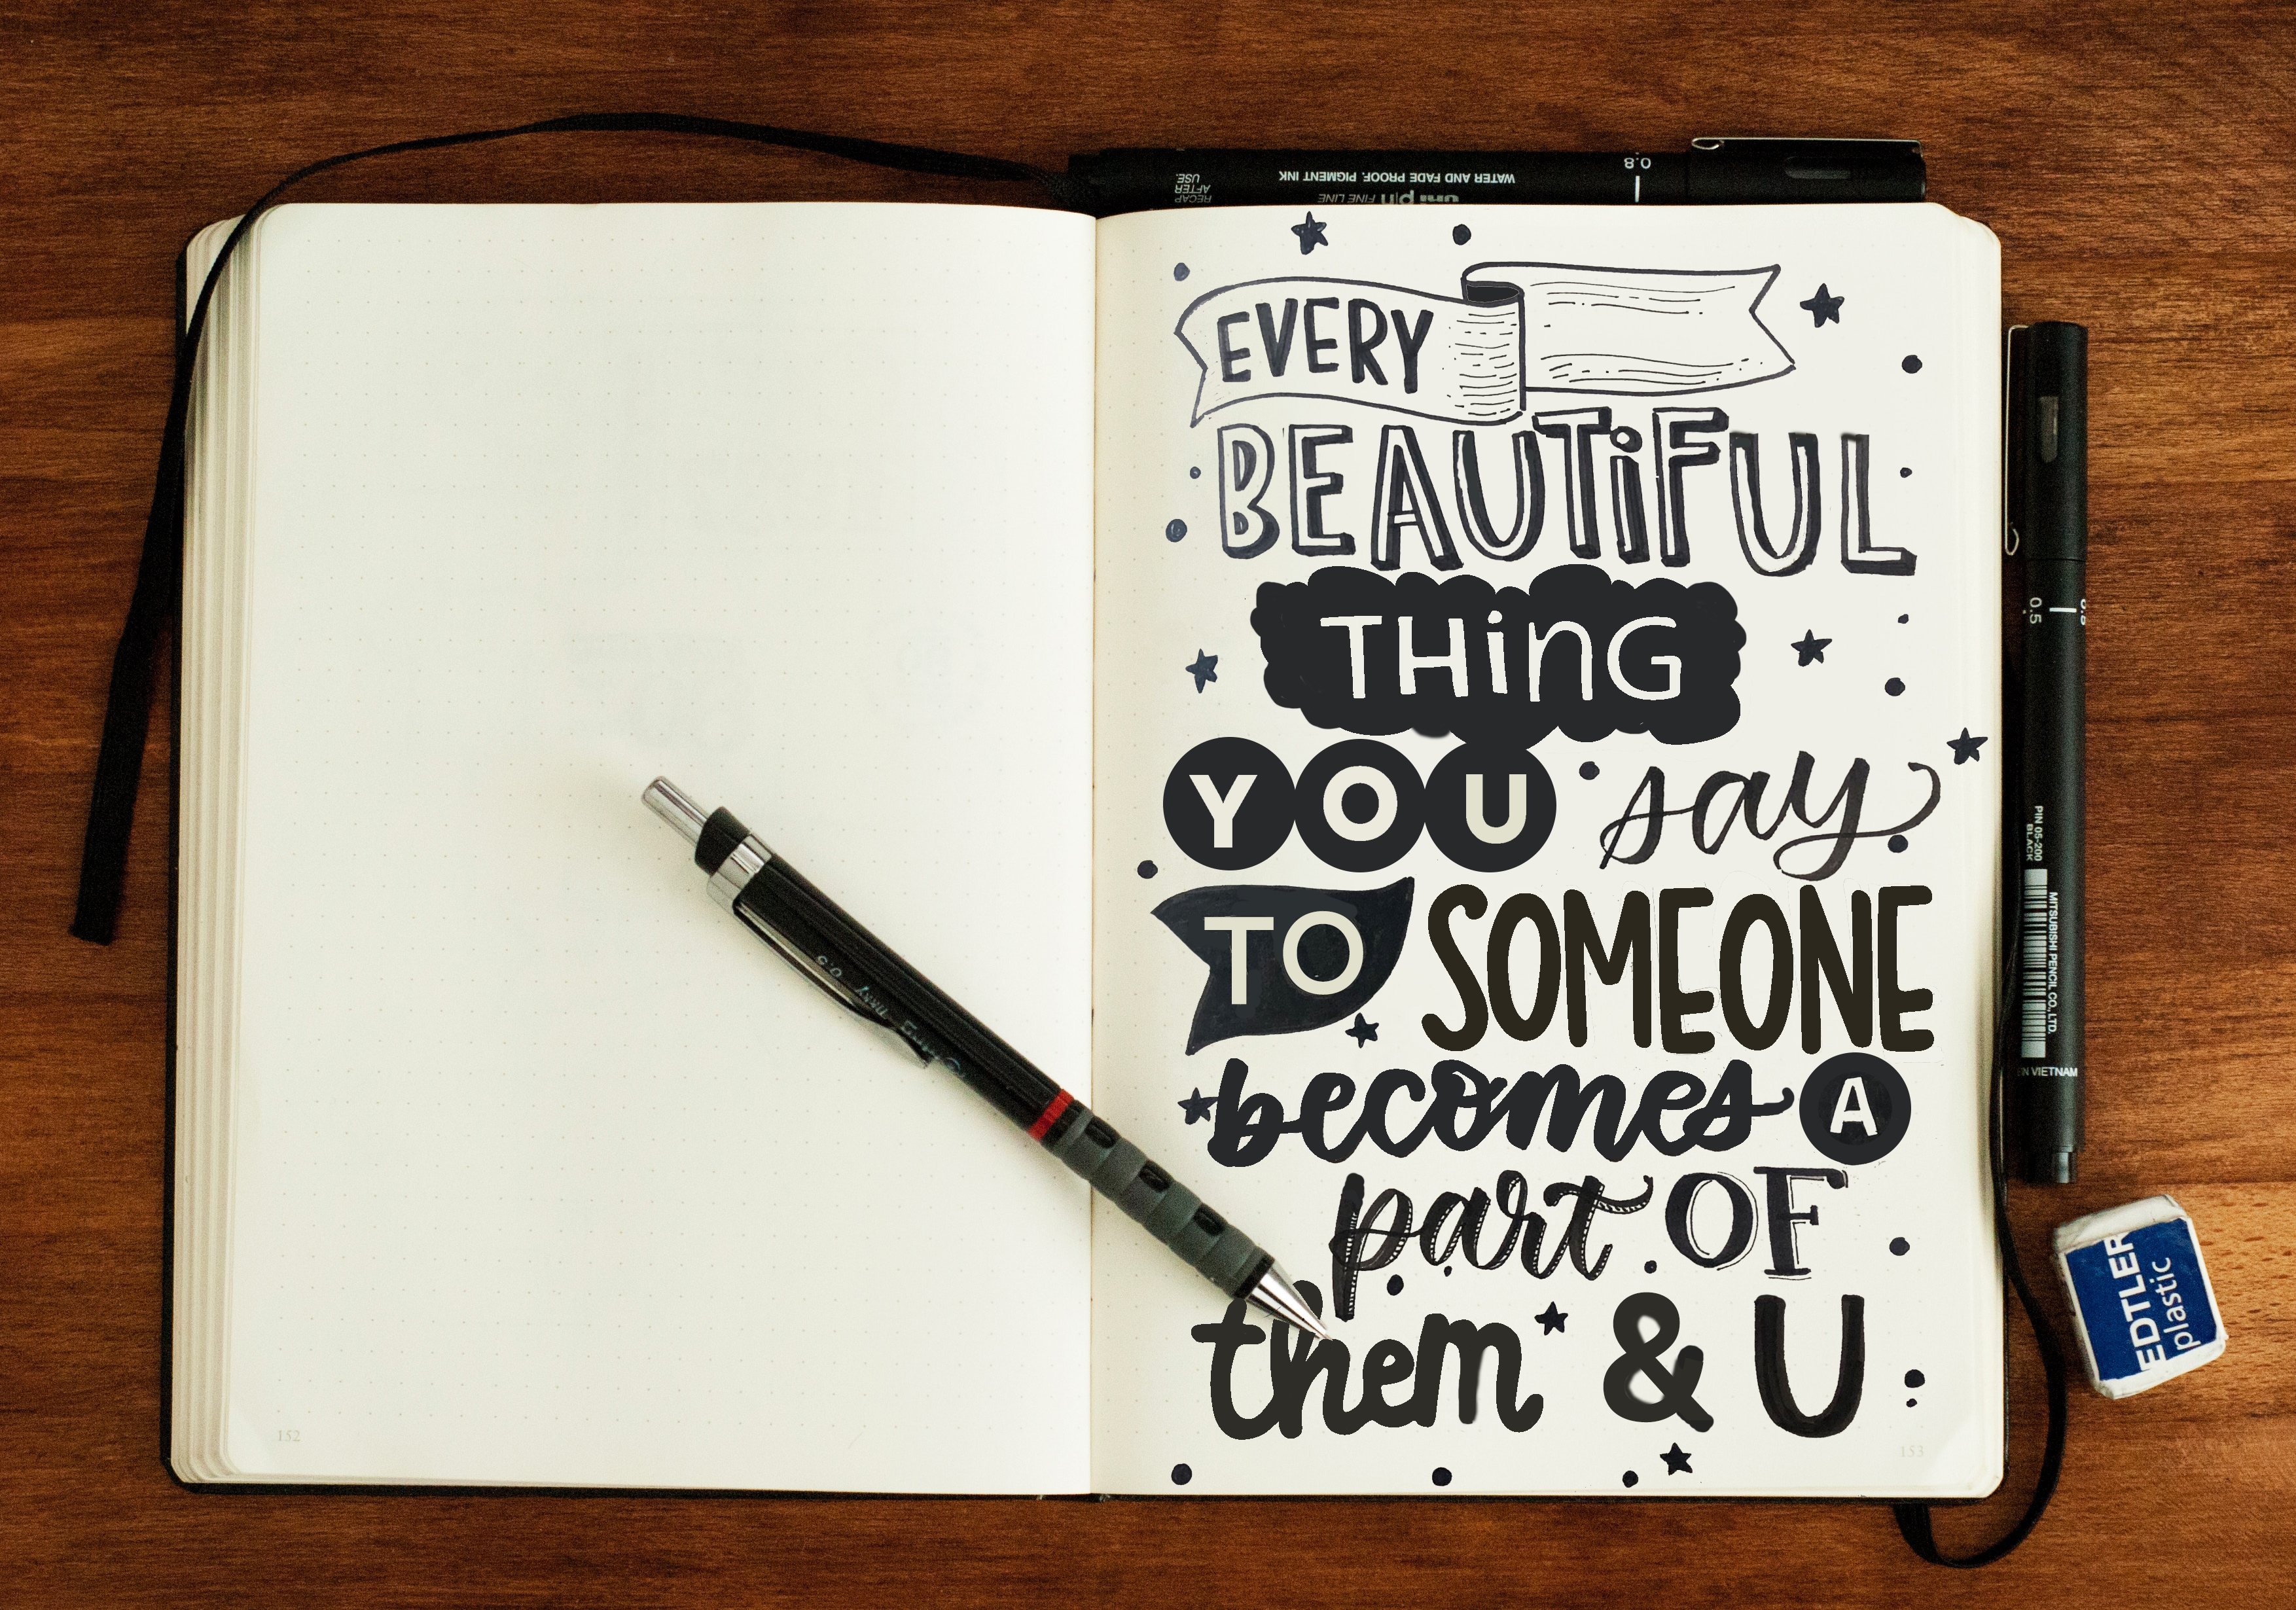 RECAP
AFTER
USE.
uni pin FINE LINE
WATER AND FADE PROOF. PIGMENT INK
0.8
EVERY
BEAUTiFUL
THiNG
YOU say
TO SOMEONE
becomes A
part OF
them & U
0.5
PIN 05-200
BLACK
MITSUBISHI PENCIL CO., LTD.
EN VIETNAM
EDTLER
plastic
0.5
152
153